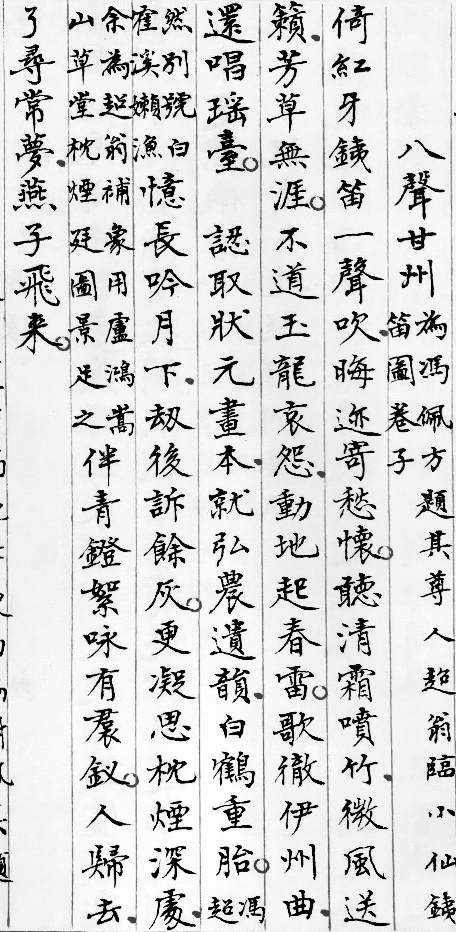 八聲甘州為馮佩方題其尊人超翁臨小仙鐵
笛圖卷子
倚紅牙鐵笛一聲吹、晦迹寄愁懷。聽清霜噴竹、微風送
籟、芳草無涯。不道玉龍哀怨、動地起春雷。歌徹伊州曲、
還唱瑤臺。　認取狀元畫本、就弘農遺韻、白鶴重胎。馮超
然別號白
霍溪嬾漁
憶長吟月下、劫後訴餘灰。更凝思枕煙深處、
余為超翁補象用盧鴻嵩
山草堂枕煙廷圖景足之
伴青鐙絮咏有裠釵。人歸去、
了尋常夢、燕子飛来。